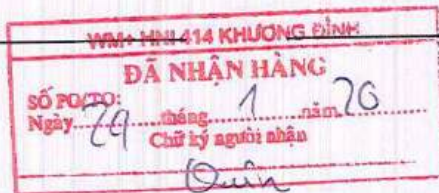 WM+ HNI 414 KHƯƠNG ĐÌNH
ĐÃ NHẬN HÀNG
SỐ PO/TO:
Ngày 29 tháng 1 năm 26
Chữ ký người nhận